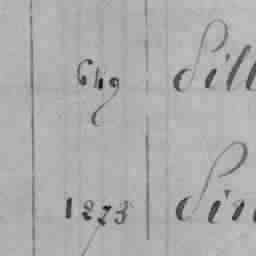 649 Sill
1273 Sin